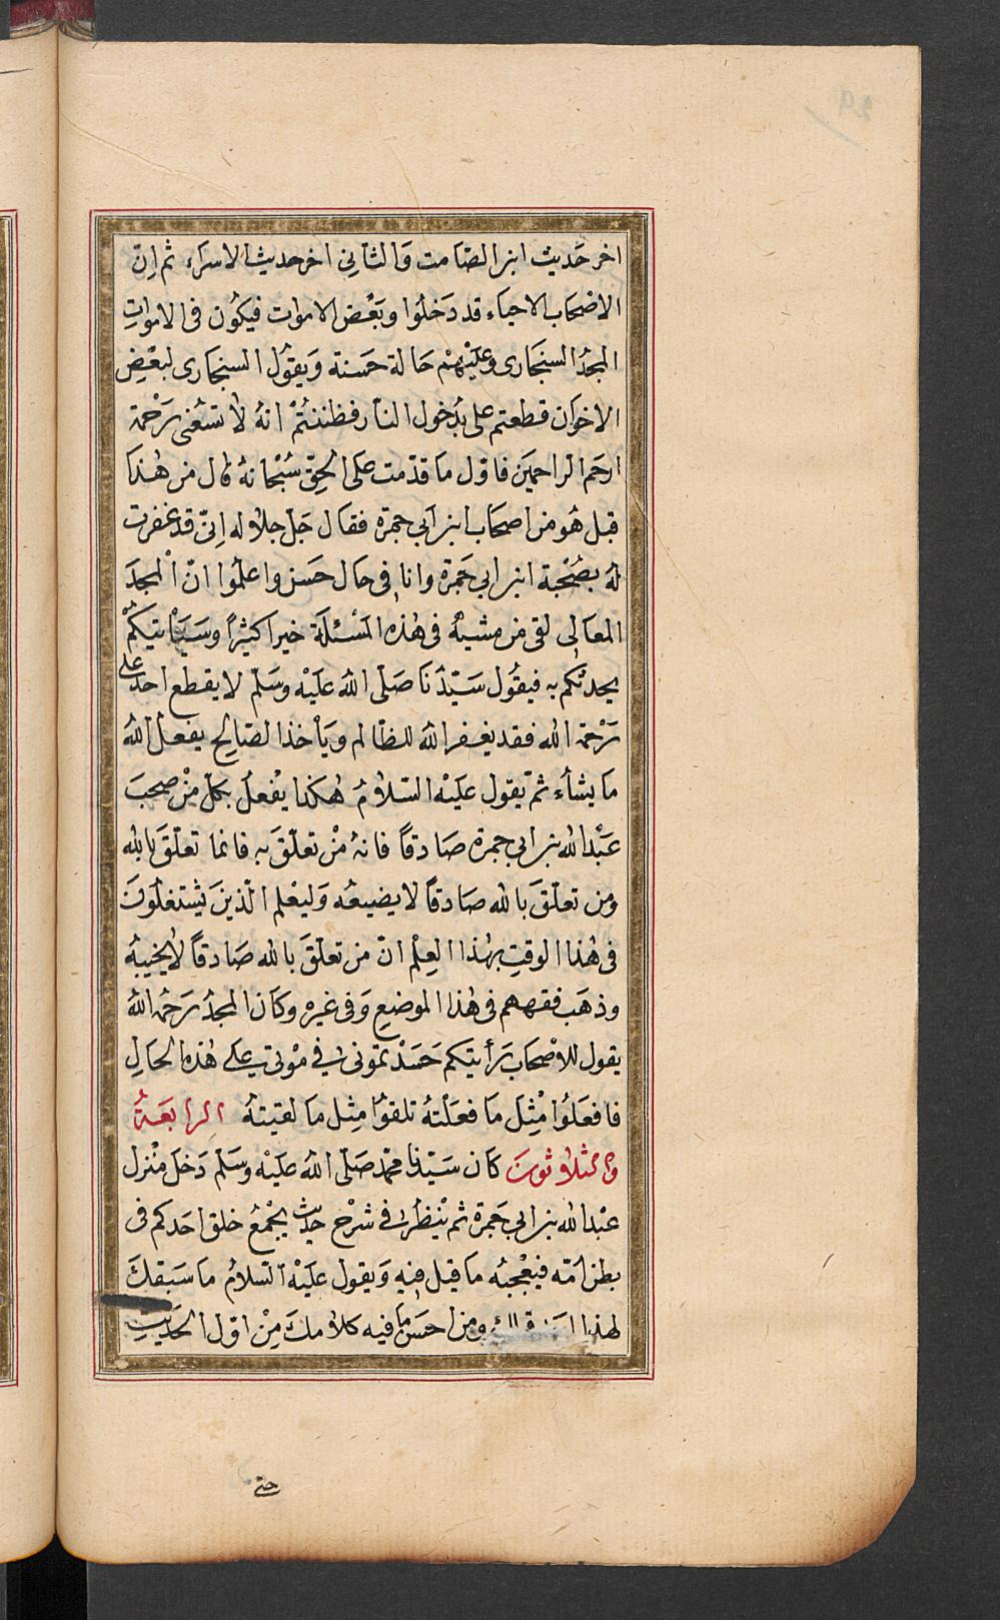 اخر حَديث ابن الصّامت وَالثّانِى اخر حديث الاسرَاء ثم اِنّ
الاصْحَاب الاحياء قد دَخلُوا وبَعْض الاموات فيكُون فى الامواتِ
المجدُ السنجَارى وعَلَيْهِمْ حَالة حَسَنة وَيقوُل السنجَارى لبعْضِ
الاخوَان قطعتم علىّ بدُخول النار فظننتُمْ انهُ لاٰ تسَعنى رَحْمة
ارحَم الراحمِيَن فاقول ما قدّمت على الحقّ سُبْحانهُ قال من هٰذا
قيل هُو من اصحَاب ابن اَبي جمرَة فقال جَلّ جلاٰله اِنىّ قدْ غفرت
لهُ بصُحْبة ابن ابي جَمرَة وانا فى حال حَسَن واعلموُا انّ الْمجدَ
المعَالى لقى من مشيهُ فى هٰذه المَسْئلَة خيرا كثيْراً وسَيَأتيكُمْ
يحدثكم به فيقُول سَيّدُنَا صَلّى اللهُ عَليْه وسَلّم لا يقطع احد على
رَحْمة الله فقد يغفر اللهُ للظّالم ويَأخذ الصَالح يفعلُ اللهُ
مَا يشَأء ثمّ يقول علَيْه السَّلاٰمُ هٰكذا يُفْعلُ بكلّ مِنْ صحبَ
عَبْد الله بن ابي جمرة صَادقاً فانهُ مَنْ تعلّقَ به فانما تعلّقَ بالله
ومن تعلّقَ بالله صَادقاً لا يضيعه وَليعْلم الّذينَ يَشْتغلوُنَ
فى هٰذا الوقتِ بهٰذا العِلْم انّ من تعلّقَ بالله صَادقاً لاٰ يخيبهُ
وذهَب فقههم فى هٰذا الموضعِ وَفى غيره وكانَ المجدُ رَحمُ اللهُ
يقول للاصْحَاب رَأيتكم حَسَدْتمونى فى مَوْتى على هٰذه الحَالِ
فافعَلُوا مْثِل مَا فعَلتهُ تلقوْا مِثل ما لقيتهُ الرابعَةُ
والثلاٰثونَ كان سَيّدنا محمّد صَلّى اللهُ عليْه وسَلّم دَخلَ منْزل
عبْد الله بن ابي جَمرَة ثم يْنظرُ فى شَرْح حديث يُجْمعُ خلق احَدكم فى
بطن اُمّه فيعْجبهُ مَا قيل فيهِ وَيقول علَيْهِ السّلاٰمُ ما سَبقكَ
لهٰذا ومن احَسَن ما فيه كلاٰمكَ مِنْ اوّل الحَديثِ
حتى